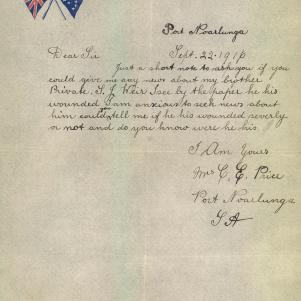 Port Noarlunga
Dear Sir Sept. 22. 1916
Just a short note to ask you if you
could give me any news about my brother
Private. T. J Weir I see by the paper he his
wounded I am anxious to seek news about
him could tell me if he his wounded severly
or not and do you know were he his.
I Am Yours
Mrs C. E. Price
Port Noarlunga
S A